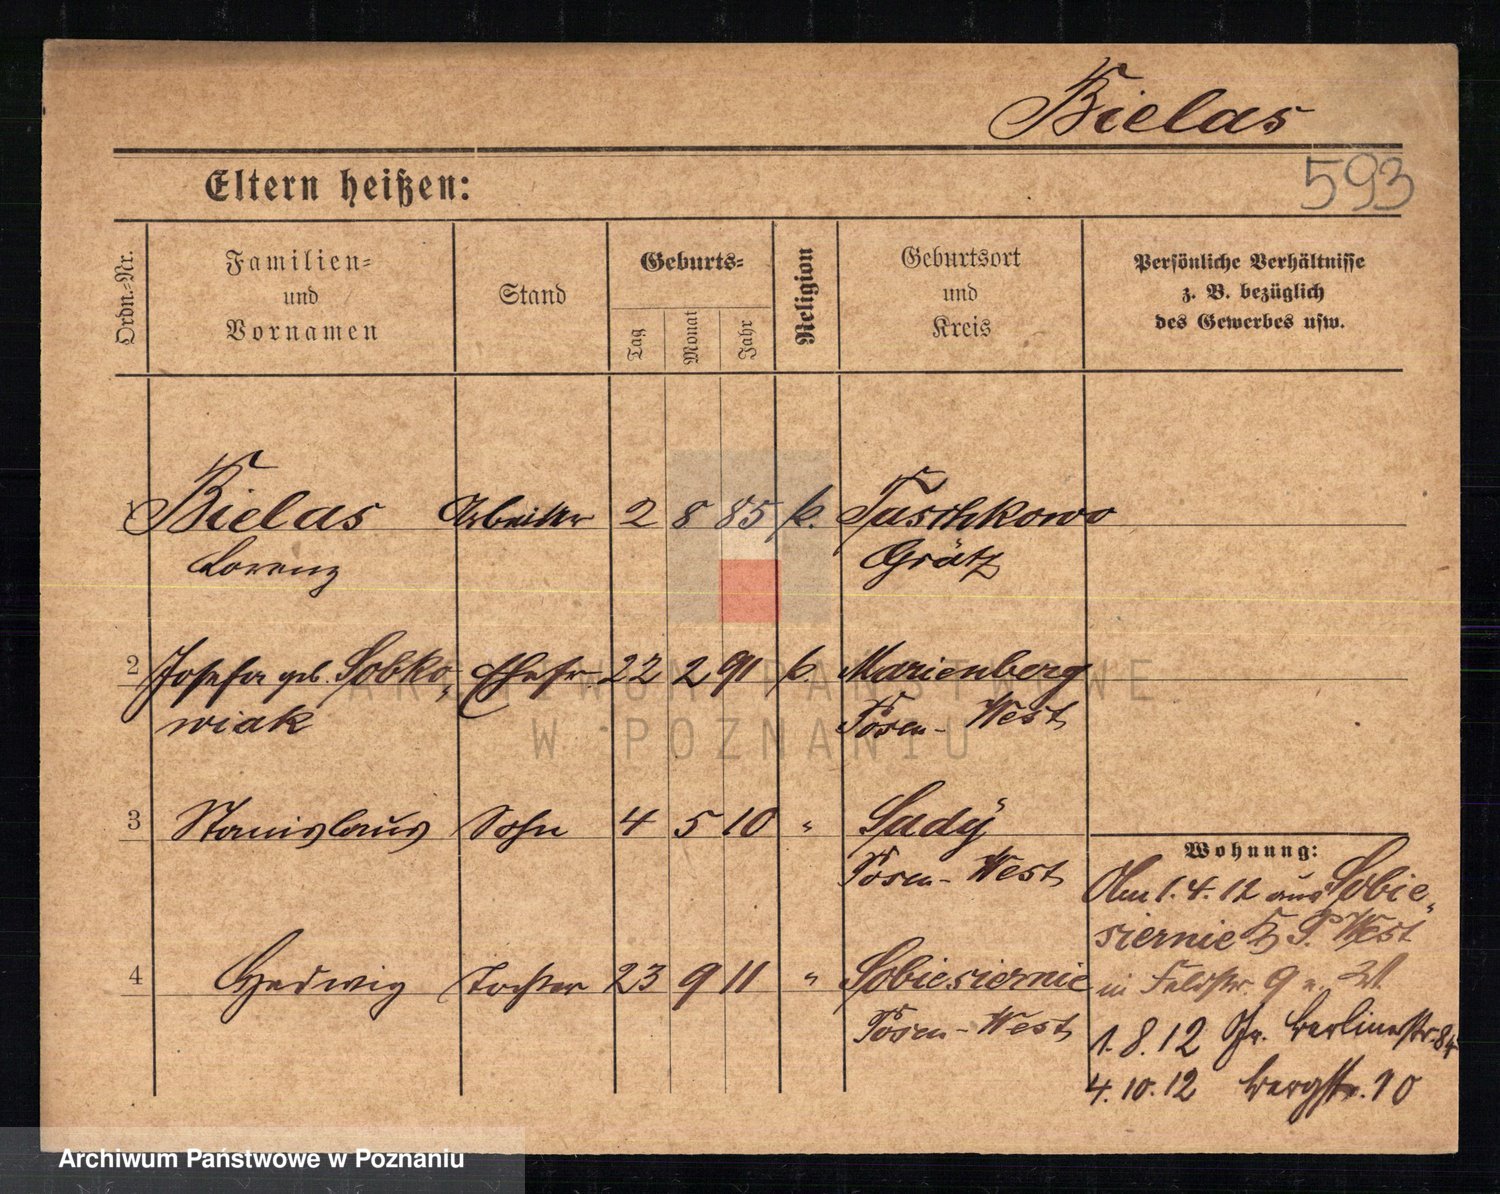 Bielas
593
Eltern heißen:
Ordn.-Nr.
Familien-
und
Vornamen
Stand
Geburts-
Tag
Monat
Jahr
Religion
Geburtsort
und
Kreis
Persönliche Verhältnisse
z. B. bezüglich
des Gewerbes usw.
1 Bielas Arbeiter 2 8 85 k. Tuschkowo
Lorenz Grätz
2 Josefa geb. Sobko- Ehefr 22 2 91 k. Marienberg
wiak Posen-West
3 Stanislaus Sohn 4 5 10 " Sady
Posen-West
4 Hedwig Tochter 23 9 11 " Sobiesiernie
Posen-West
Wohnung:
Am 1.4.12 aus Sobie-
siernie P. West
in Feldstr. 9
1.8.12 Gr. Berlinerstr. 84
4.10.12 Bergstr. 10
ARCHIWUM PAŃSTWOWE
W POZNANIU
Archiwum Państwowe w Poznaniu